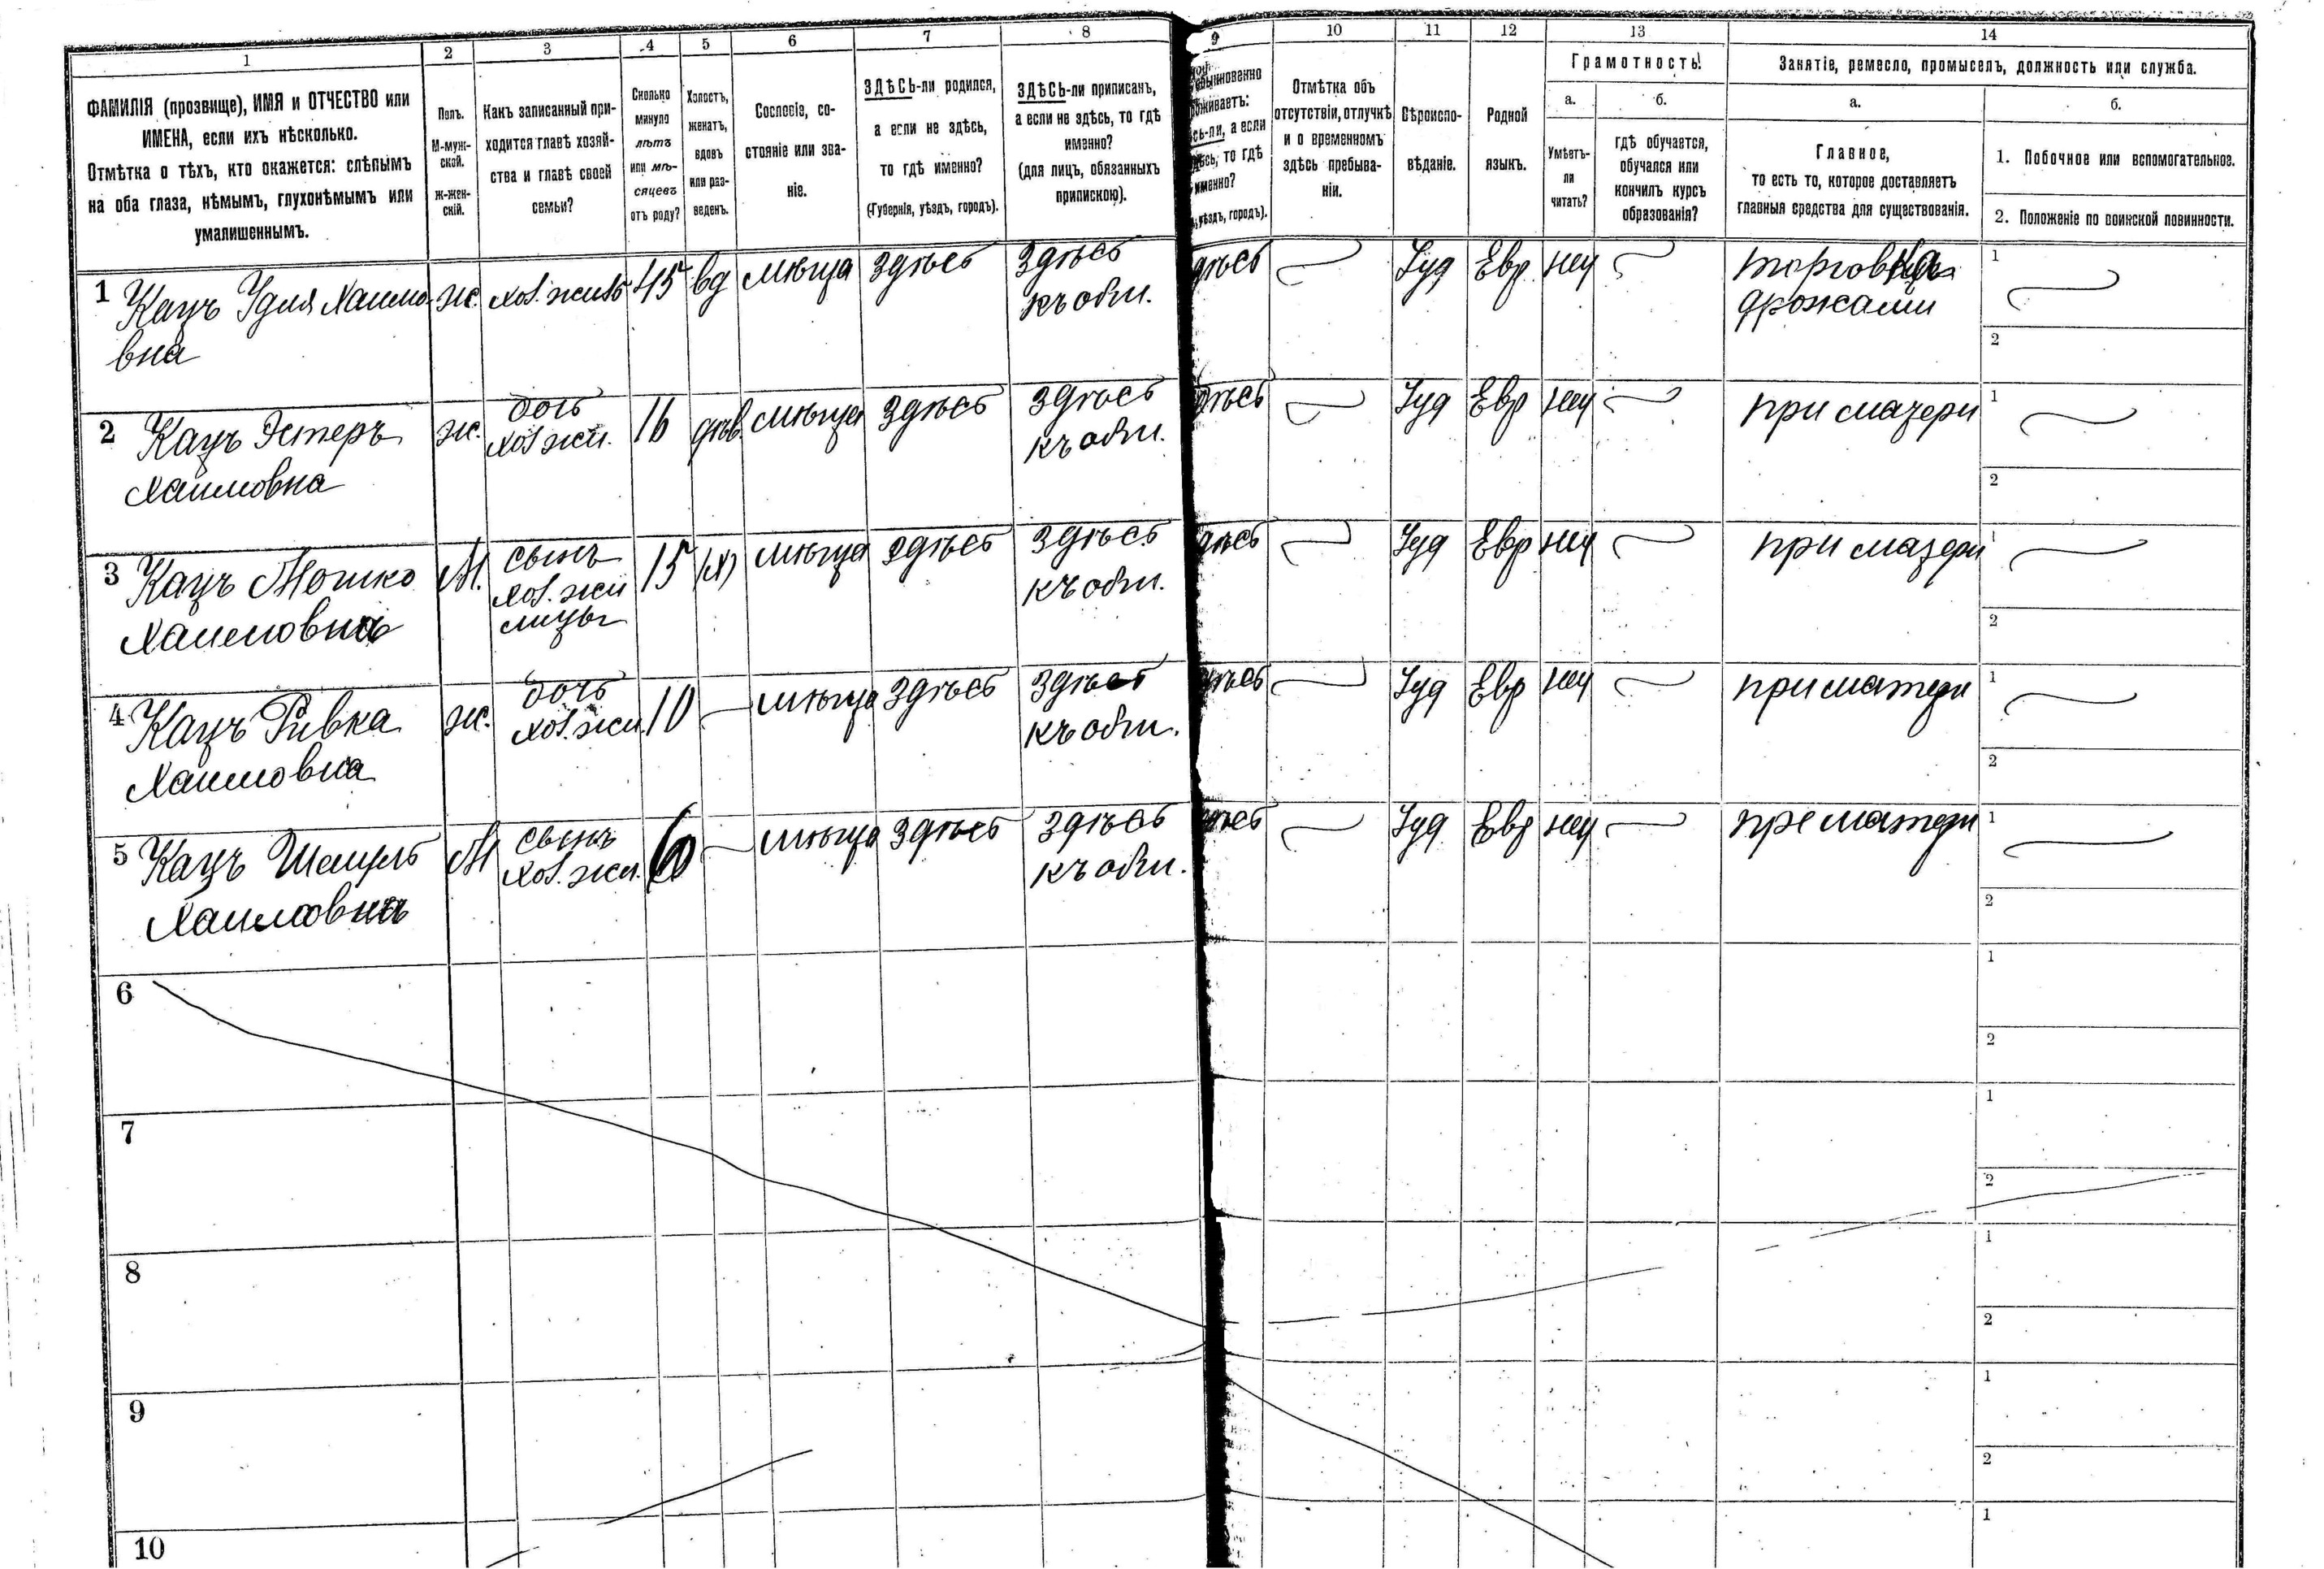 1 2 3 4 5 6 7 8 9 10 11 12 13 14
ФАМИЛІЯ (прозвище), ИМЯ и ОТЧЕСТВО или
ИМЕНА, если ихъ нѣсколько.
Отмѣтка о тѣхъ, кто окажется: слѣпымъ
на оба глаза, нѣмымъ, глухонѣмымъ или
умалишеннымъ.
Полъ.
М-муж-
ской.
Ж-жен-
скій.
Какъ записанный при-
ходится главѣ хозяй-
ства и главѣ своей
семьи?
Сколько
минуло
лѣтъ
или мѣ-
сяцевъ
отъ роду?
Холостъ,
женатъ,
вдовъ
или раз-
веденъ.
Сословіе, со-
стояніе или зва-
ніе.
ЗДѢСЬ-ли родился,
а если не здѣсь,
то гдѣ именно?
(Губернія, уѣздъ, городъ).
ЗДѢСЬ-ли приписанъ,
а если не здѣсь, то гдѣ
именно?
(для лицъ, обязанныхъ
припискою).
а если
то гдѣ
именно?
уѣздъ, городъ).
Отмѣтка объ
отсутствіи, отлучкѣ
и о временномъ
здѣсь пребыва-
ніи.
Вѣроиспо-
вѣданіе.
Родной
языкъ.
Грамотность.
а.
Умѣетъ-
ли
читать?
б.
гдѣ обучается,
обучался или
кончилъ курсъ
образованія?
Занятіе, ремесло, промыселъ, должность или служба.
а.
Главное,
то есть то, которое доставляетъ
главныя средства для существованія.
б.
1. Побочное или вспомогательное.
2. Положеніе по воинской повинности.
1 Кацъ Удля Хаимо-
вна
ж. хоз. 45 вд мѣща здѣсь здѣсь
къ общ.
дѣсь Іуд Евр нѣт торговка
дрожами
1
2
2 Кацъ Эстеръ
Хаимовна
ж. дочь
хоз. жи.
16 дѣв. мѣща здѣсь здѣсь
къ общ.
дѣсь Іуд Евр нѣт при матери
1
2
3 Кацъ Мошко
Хаимовна
М. сынъ
хоз. жи
лицы
15 (х) мѣща здѣсь здѣсь
къ общ.
дѣсь Іуд Евр нѣт при матери
1
2
4 Кацъ Ривка
Хаимовна
ж. дочь
хоз. жи.
10 мѣща здѣсь здѣсь
къ общ.
дѣсь Іуд Евр нѣт при матери
1
2
5 Кацъ Шмуль
Хаимовна
М сынъ
хоз. жи.
6 мѣща здѣсь здѣсь
къ общ.
дѣсь Іуд Евр нѣт при матери
1
2
6
1
2
7
1
2
8
1
2
9
1
2
10
1